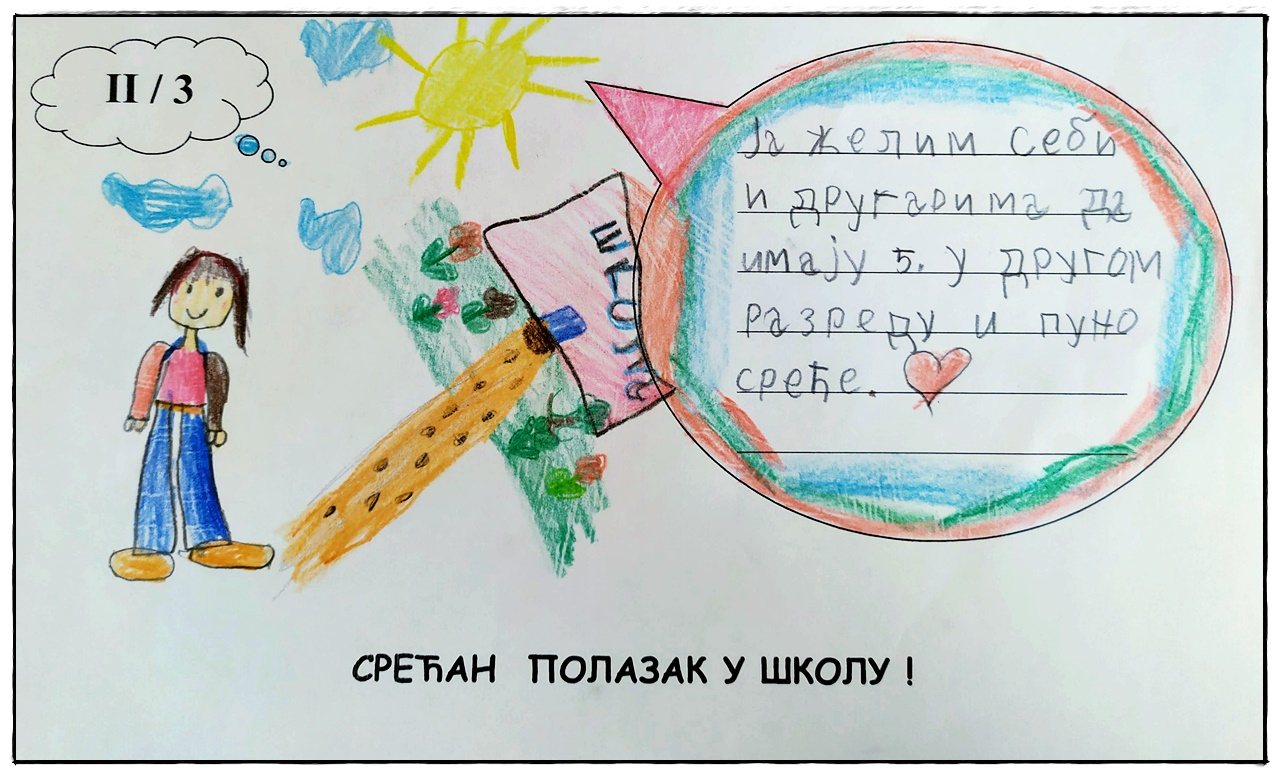 II / 3
Ја желим себи
и другарима да
имају 5. у другом
разреду и пуно
среће.
СРЕЋАН ПОЛАЗАК У ШКОЛУ !